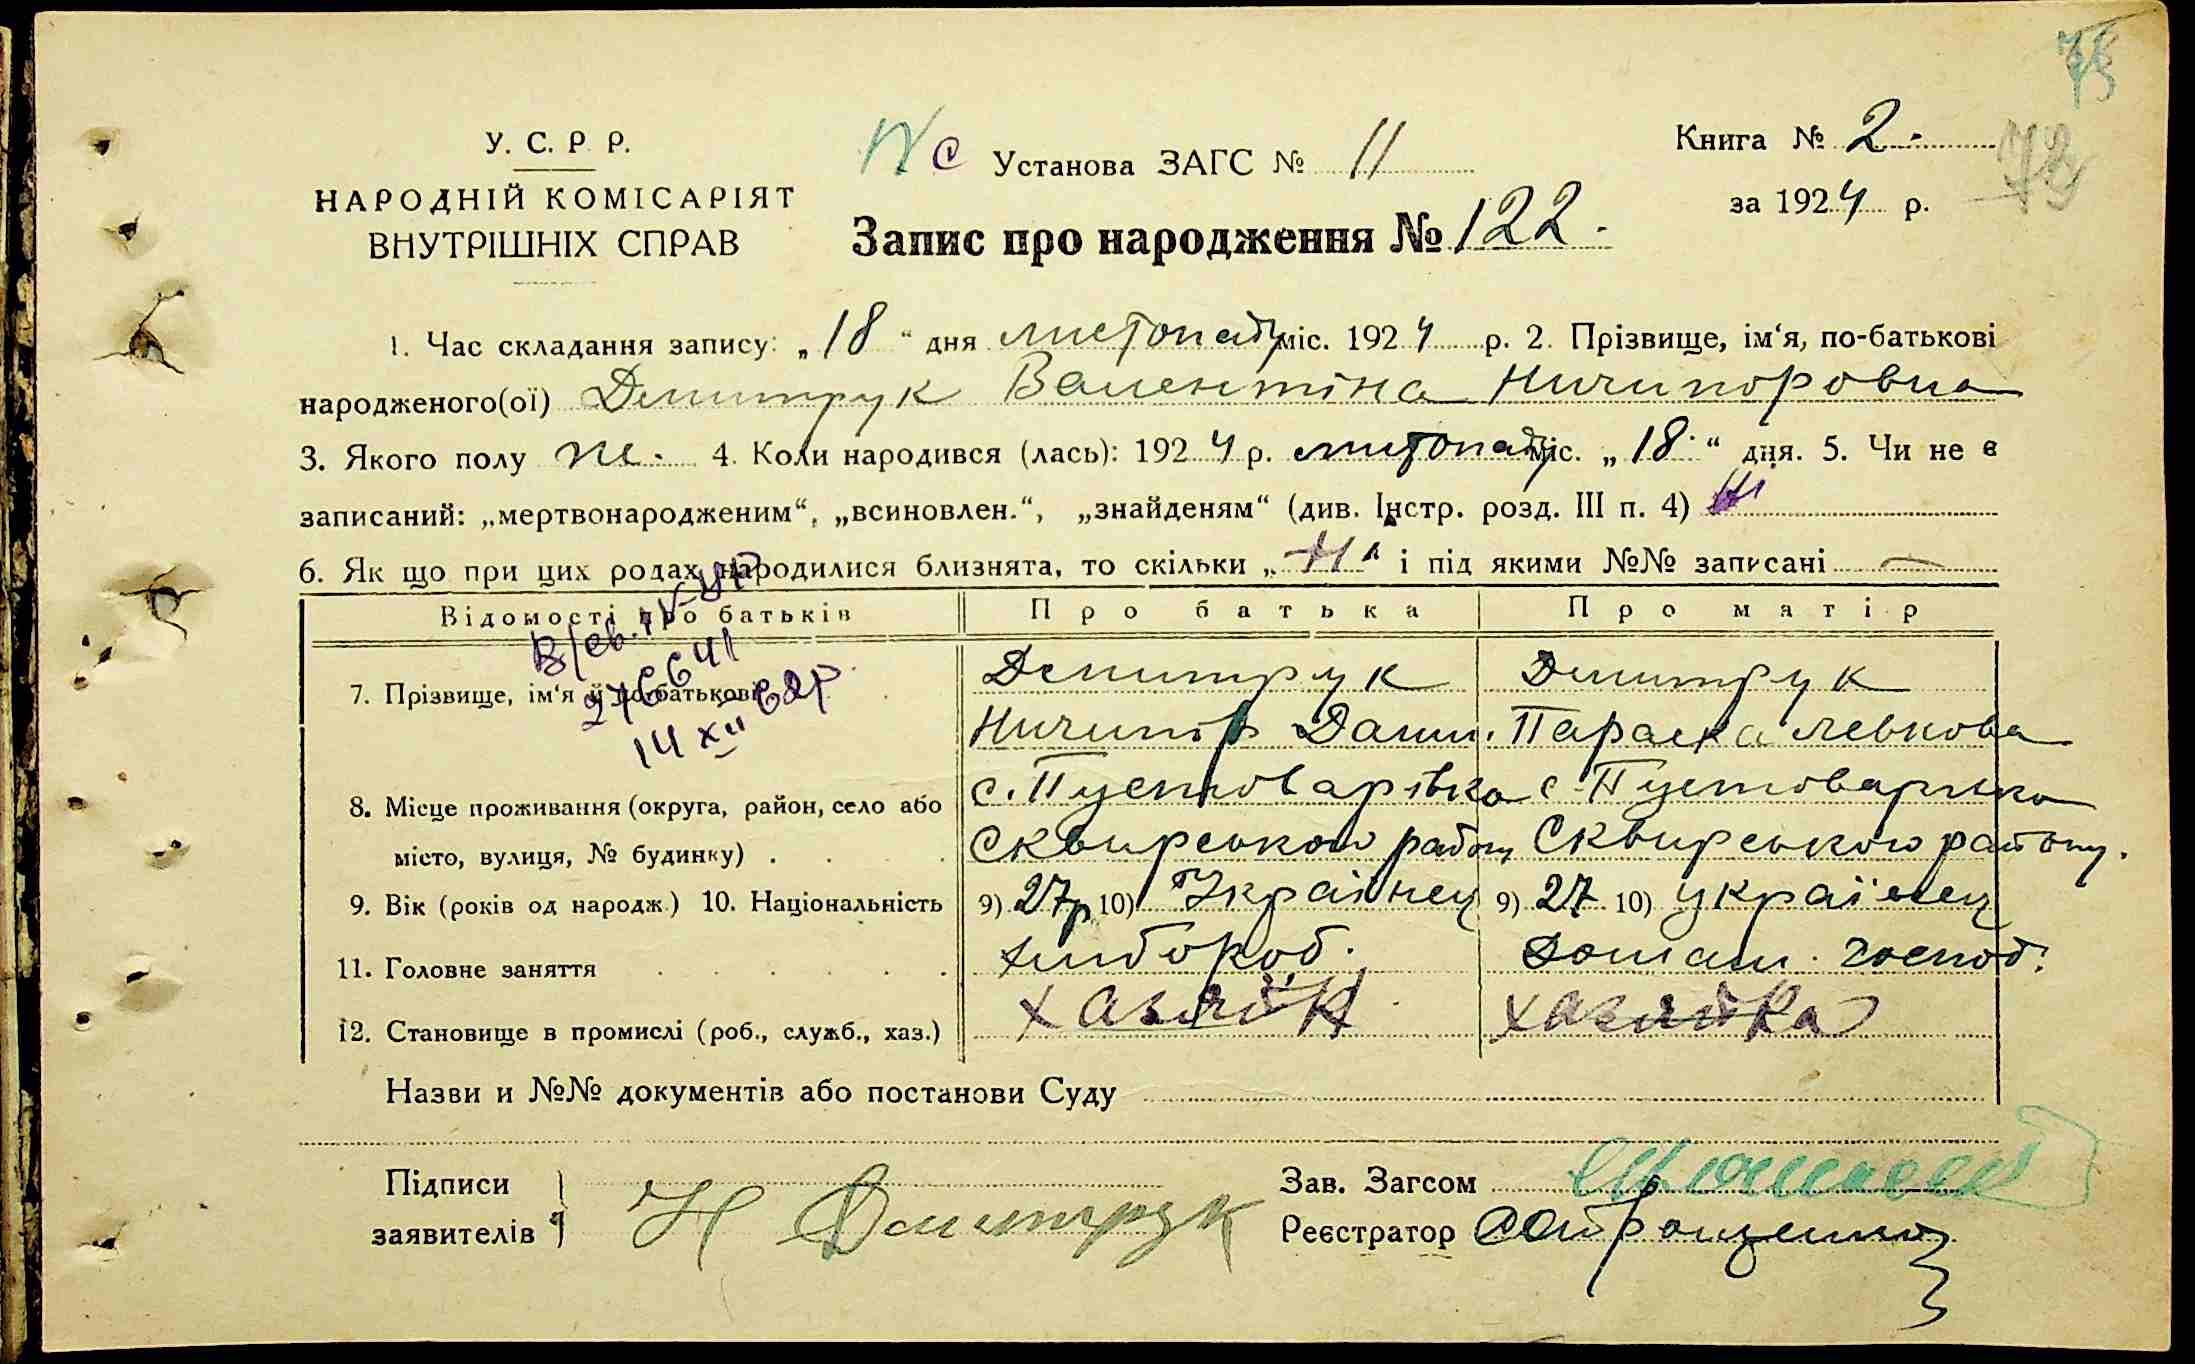 75
72
У. С. Р. Р.
НАРОДНІЙ КОМІСАРІЯТ
ВНУТРІШНІХ СПРАВ
Установа ЗАГС № 11
Запис про народження № 122.
Книга № 2.
за 1924 р.
1. Час складання запису: „18“ дня листопаду міс. 1924 р. 2. Прізвище, ім‘я, по-батькові
народженого(ої) Демитрук Валентіна Ничипоровна
3. Якого полу ж. 4. Коли народився (лась): 1924 р. листопаду міс. „18“ дня. 5. Чи не є
записаний: „мертвонародженим“, „всиновлен.“, „знайденям“ (див. Інстр. розд. III п. 4) Ні
6. Як що при цих родах народилися близнята, то скільки „Н“ і під якими №№ записані —
Відомості про батьків Про батька Про матір
7. Прізвище, ім‘я й по-батькові Демитрук Демитрук
Ничипір Данил. Параска Левкова
8. Місце проживання (округа, район, село або с. Пустоварівка с. Пустоварівка
місто, вулиця, № будинку) Сквирського району Сквирського району.
9. Вік (років од народж.) 10. Національність 9) 27р 10) Українец 9) 27 10) українец
11. Головне заняття хлібороб. Домаш. господ.
12. Становище в промислі (роб., служб., хаз.) хазяїн хазяйка
14 XII 62р.
Назви и №№ документів або постанови Суду
Підписи
заявителів Н Демитрук
Зав. Загсом
Реєстратор